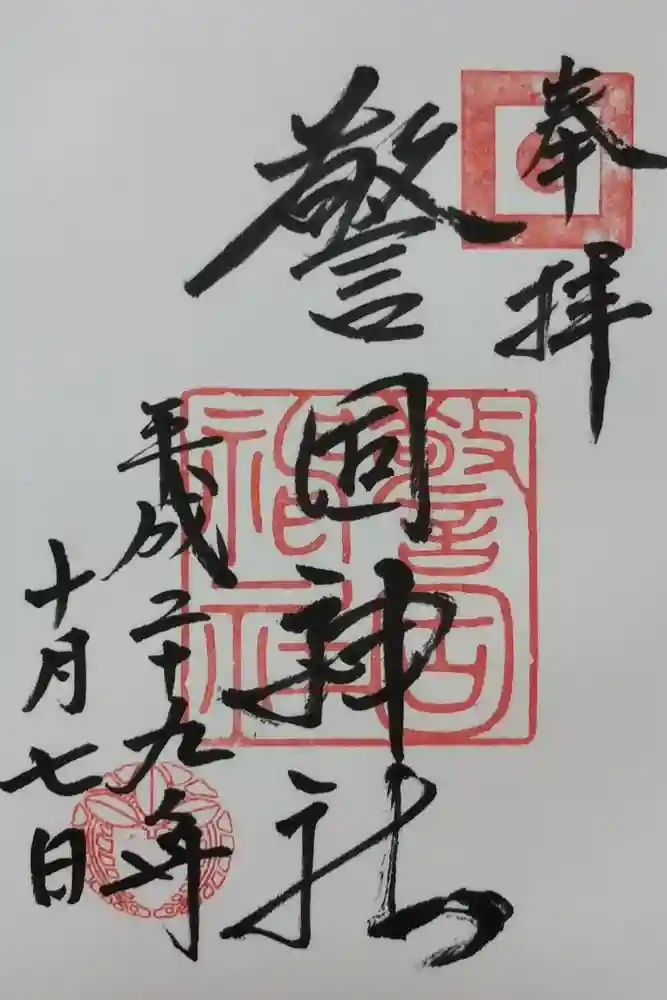 奉拝
警固神社
平成二十九年
十月七日
警固
神社